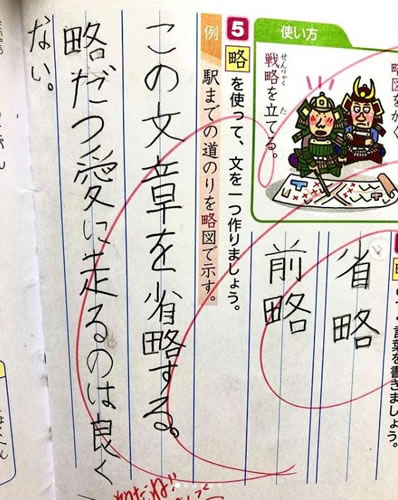 使い方
略図をかく。
戦略を立てる。
せんりゃく
た
言葉を書きましょう。
省略
前略
5 略を使って、文を一つ作りましょう。
例 駅までの道のりを略図で示す。
この文章を省略する。
略だつ愛に走るのは良く
ない。